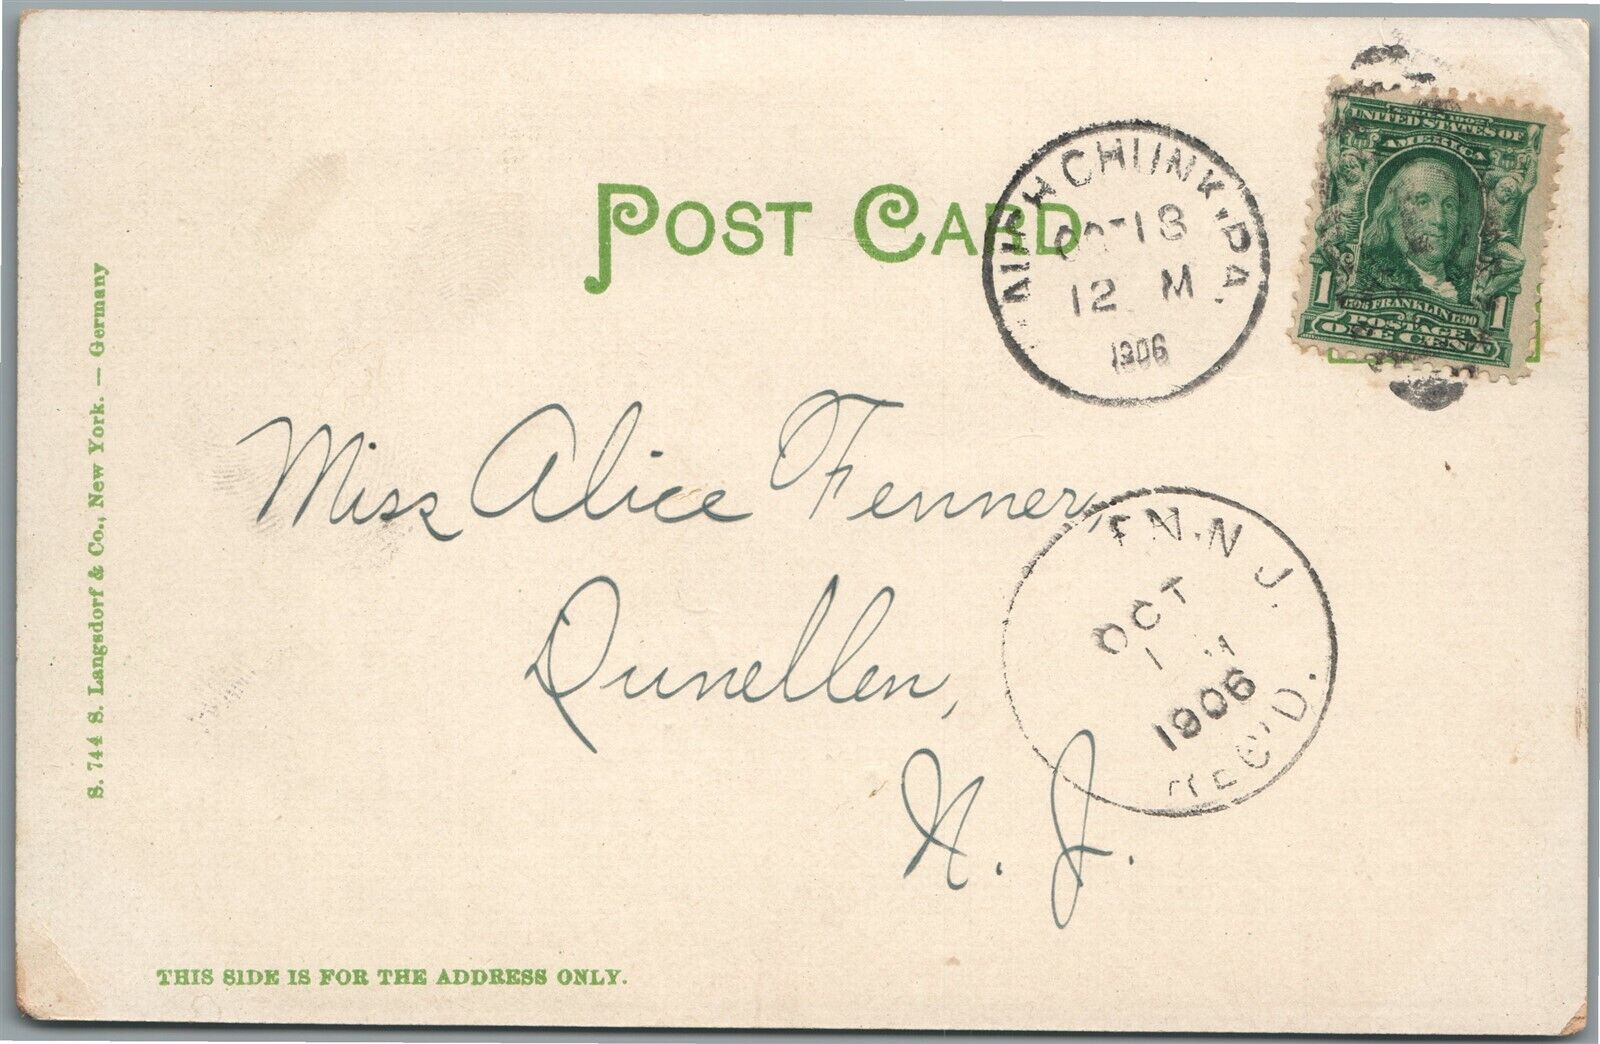 POST CARD
MAUCH CHUNK, PA.
OCT 18
12 M
1906
SERIES 1902
UNITED STATES OF
AMERICA
1 1
1706 FRANKLIN 1790
POSTAGE
ONE CENT
Miss Alice Fenner,
Dunellen,
N. J.
N. J.
OCT
1906
REC'D.
S. 744 S. Langsdorf & Co., New York. — Germany
THIS SIDE IS FOR THE ADDRESS ONLY.